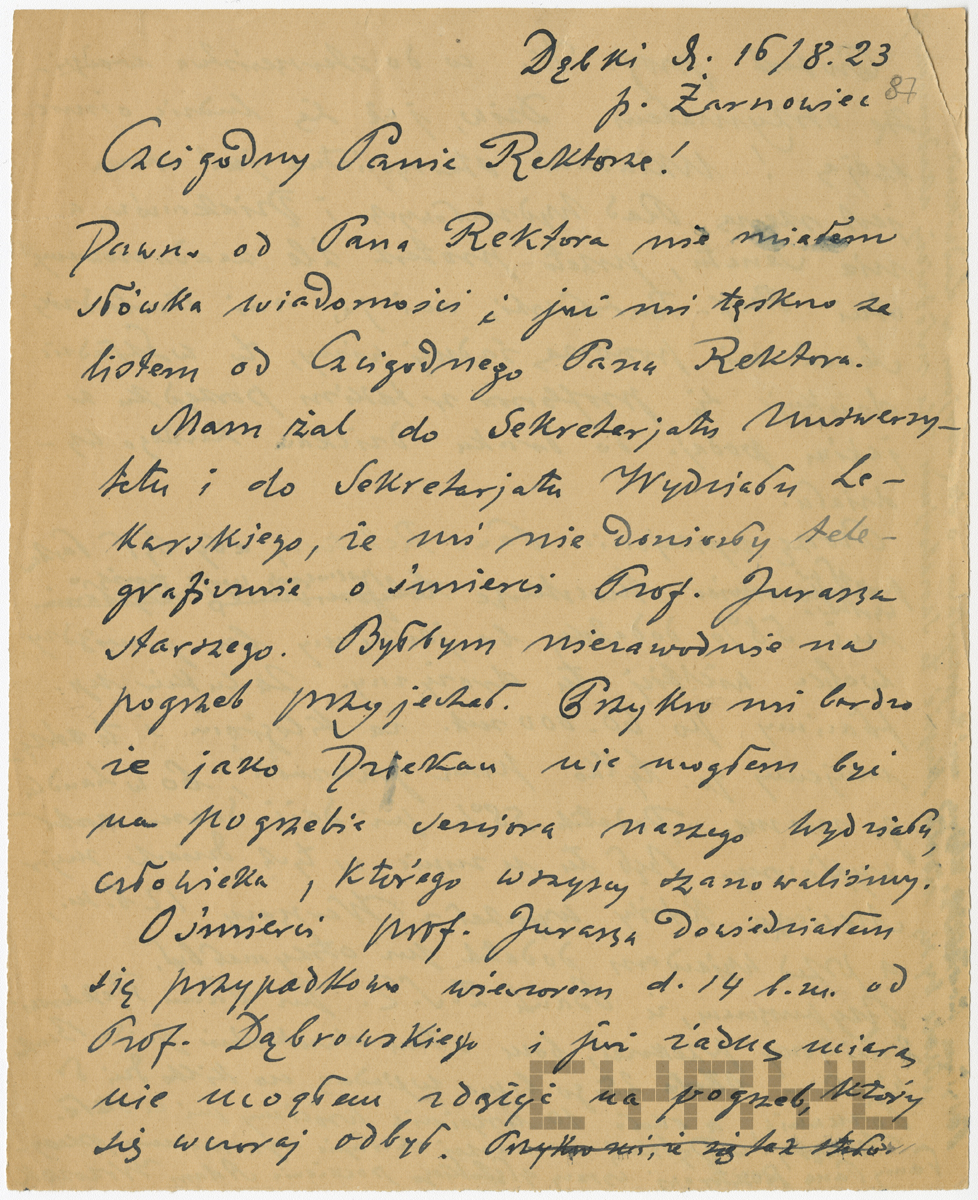 Dąbki d. 16/8.23
p. Żarnowiec 87
Czcigodny Panie Rektorze!
Dawno od Pana Rektora nie miałem
słówka wiadomości i już mi tęskno za
listem od Czcigodnego Pana Rektora.
Mam żal do Sekretarjatu Uniwersy-
tetu i do Sekretarjatu Wydziału Le-
karskiego, że mi nie doniosły tele-
graficznie o śmierci Prof. Jurasza
starszego. Byłbym niezawodnie na
pogrzeb przyjechał. Przykro mi bardzo
że jako Dziekan nie mogłem być
na pogrzebie seniora naszego wydziału,
człowieka, którego wszyscy szanowaliśmy.
O śmierci prof. Jurasza dowiedziałem
się przypadkowo wieczorem d. 14 b.m. od
Prof. Dąbrowskiego i już żadną miarą
nie mogłem zdążyć na pogrzeb, który
się wczoraj odbył. Przykro mi, że się tak stało.
CHAHL